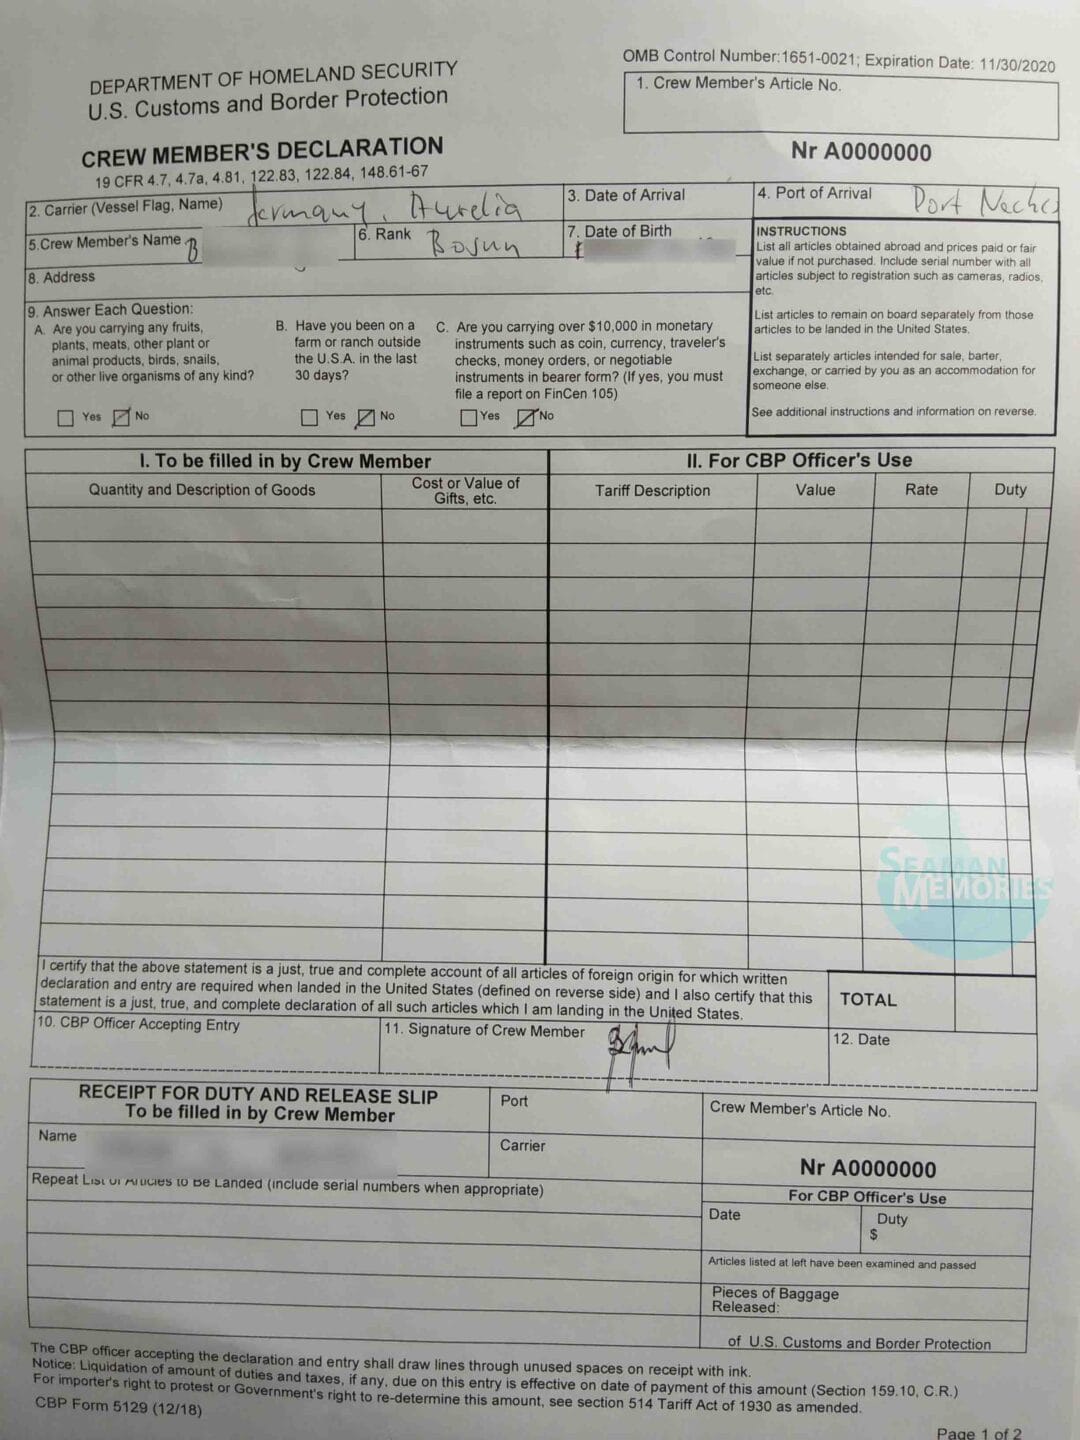 OMB Control Number:1651-0021; Expiration Date: 11/30/2020
DEPARTMENT OF HOMELAND SECURITY
U.S. Customs and Border Protection
1. Crew Member's Article No.
CREW MEMBER'S DECLARATION
19 CFR 4.7, 4.7a, 4.81, 122.83, 122.84, 148.61-67
Nr A0000000
2. Carrier (Vessel Flag, Name) Germany, Aurelia
3. Date of Arrival
4. Port of Arrival Port Neches
5.Crew Member's Name B
6. Rank Bosun
7. Date of Birth
8. Address
INSTRUCTIONS
List all articles obtained abroad and prices paid or fair
value if not purchased. Include serial number with all
articles subject to registration such as cameras, radios,
etc.
List articles to remain on board separately from those
articles to be landed in the United States.
List separately articles intended for sale, barter,
exchange, or carried by you as an accommodation for
someone else.
See additional instructions and information on reverse.
9. Answer Each Question:
A. Are you carrying any fruits,
plants, meats, other plant or
animal products, birds, snails,
or other live organisms of any kind?
Yes No
B. Have you been on a
farm or ranch outside
the U.S.A. in the last
30 days?
Yes No
C. Are you carrying over $10,000 in monetary
instruments such as coin, currency, traveler's
checks, money orders, or negotiable
instruments in bearer form? (If yes, you must
file a report on FinCen 105)
Yes No
I. To be filled in by Crew Member
II. For CBP Officer's Use
Quantity and Description of Goods
Cost or Value of
Gifts, etc.
Tariff Description
Value
Rate
Duty
SEAMAN
MEMORIES
I certify that the above statement is a just, true and complete account of all articles of foreign origin for which written
declaration and entry are required when landed in the United States (defined on reverse side) and I also certify that this
statement is a just, true, and complete declaration of all such articles which I am landing in the United States.
TOTAL
10. CBP Officer Accepting Entry
11. Signature of Crew Member
12. Date
RECEIPT FOR DUTY AND RELEASE SLIP
To be filled in by Crew Member
Port
Crew Member's Article No.
Name
Carrier
Nr A0000000
Repeat List of Articles to Be Landed (Include serial numbers when appropriate)
For CBP Officer's Use
Date
Duty
$
Articles listed at left have been examined and passed
Pieces of Baggage
Released:
of U.S. Customs and Border Protection
The CBP officer accepting the declaration and entry shall draw lines through unused spaces on receipt with ink.
Notice: Liquidation of amount of duties and taxes, if any, due on this entry is effective on date of payment of this amount (Section 159.10, C.R.)
For importer's right to protest or Government's right to re-determine this amount, see section 514 Tariff Act of 1930 as amended.
CBP Form 5129 (12/18)
Page 1 of 2